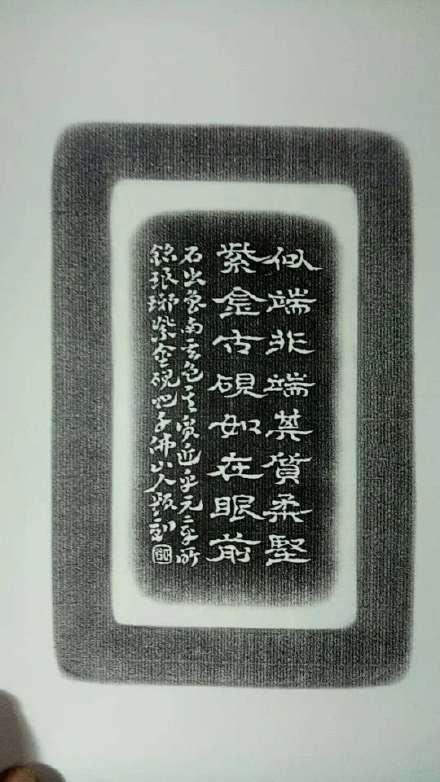 似端非端其質柔堅
紫金古硯如在眼前
石出魯南其色其質近米元章所
銘琅琊紫金硯也千佛山人題刻